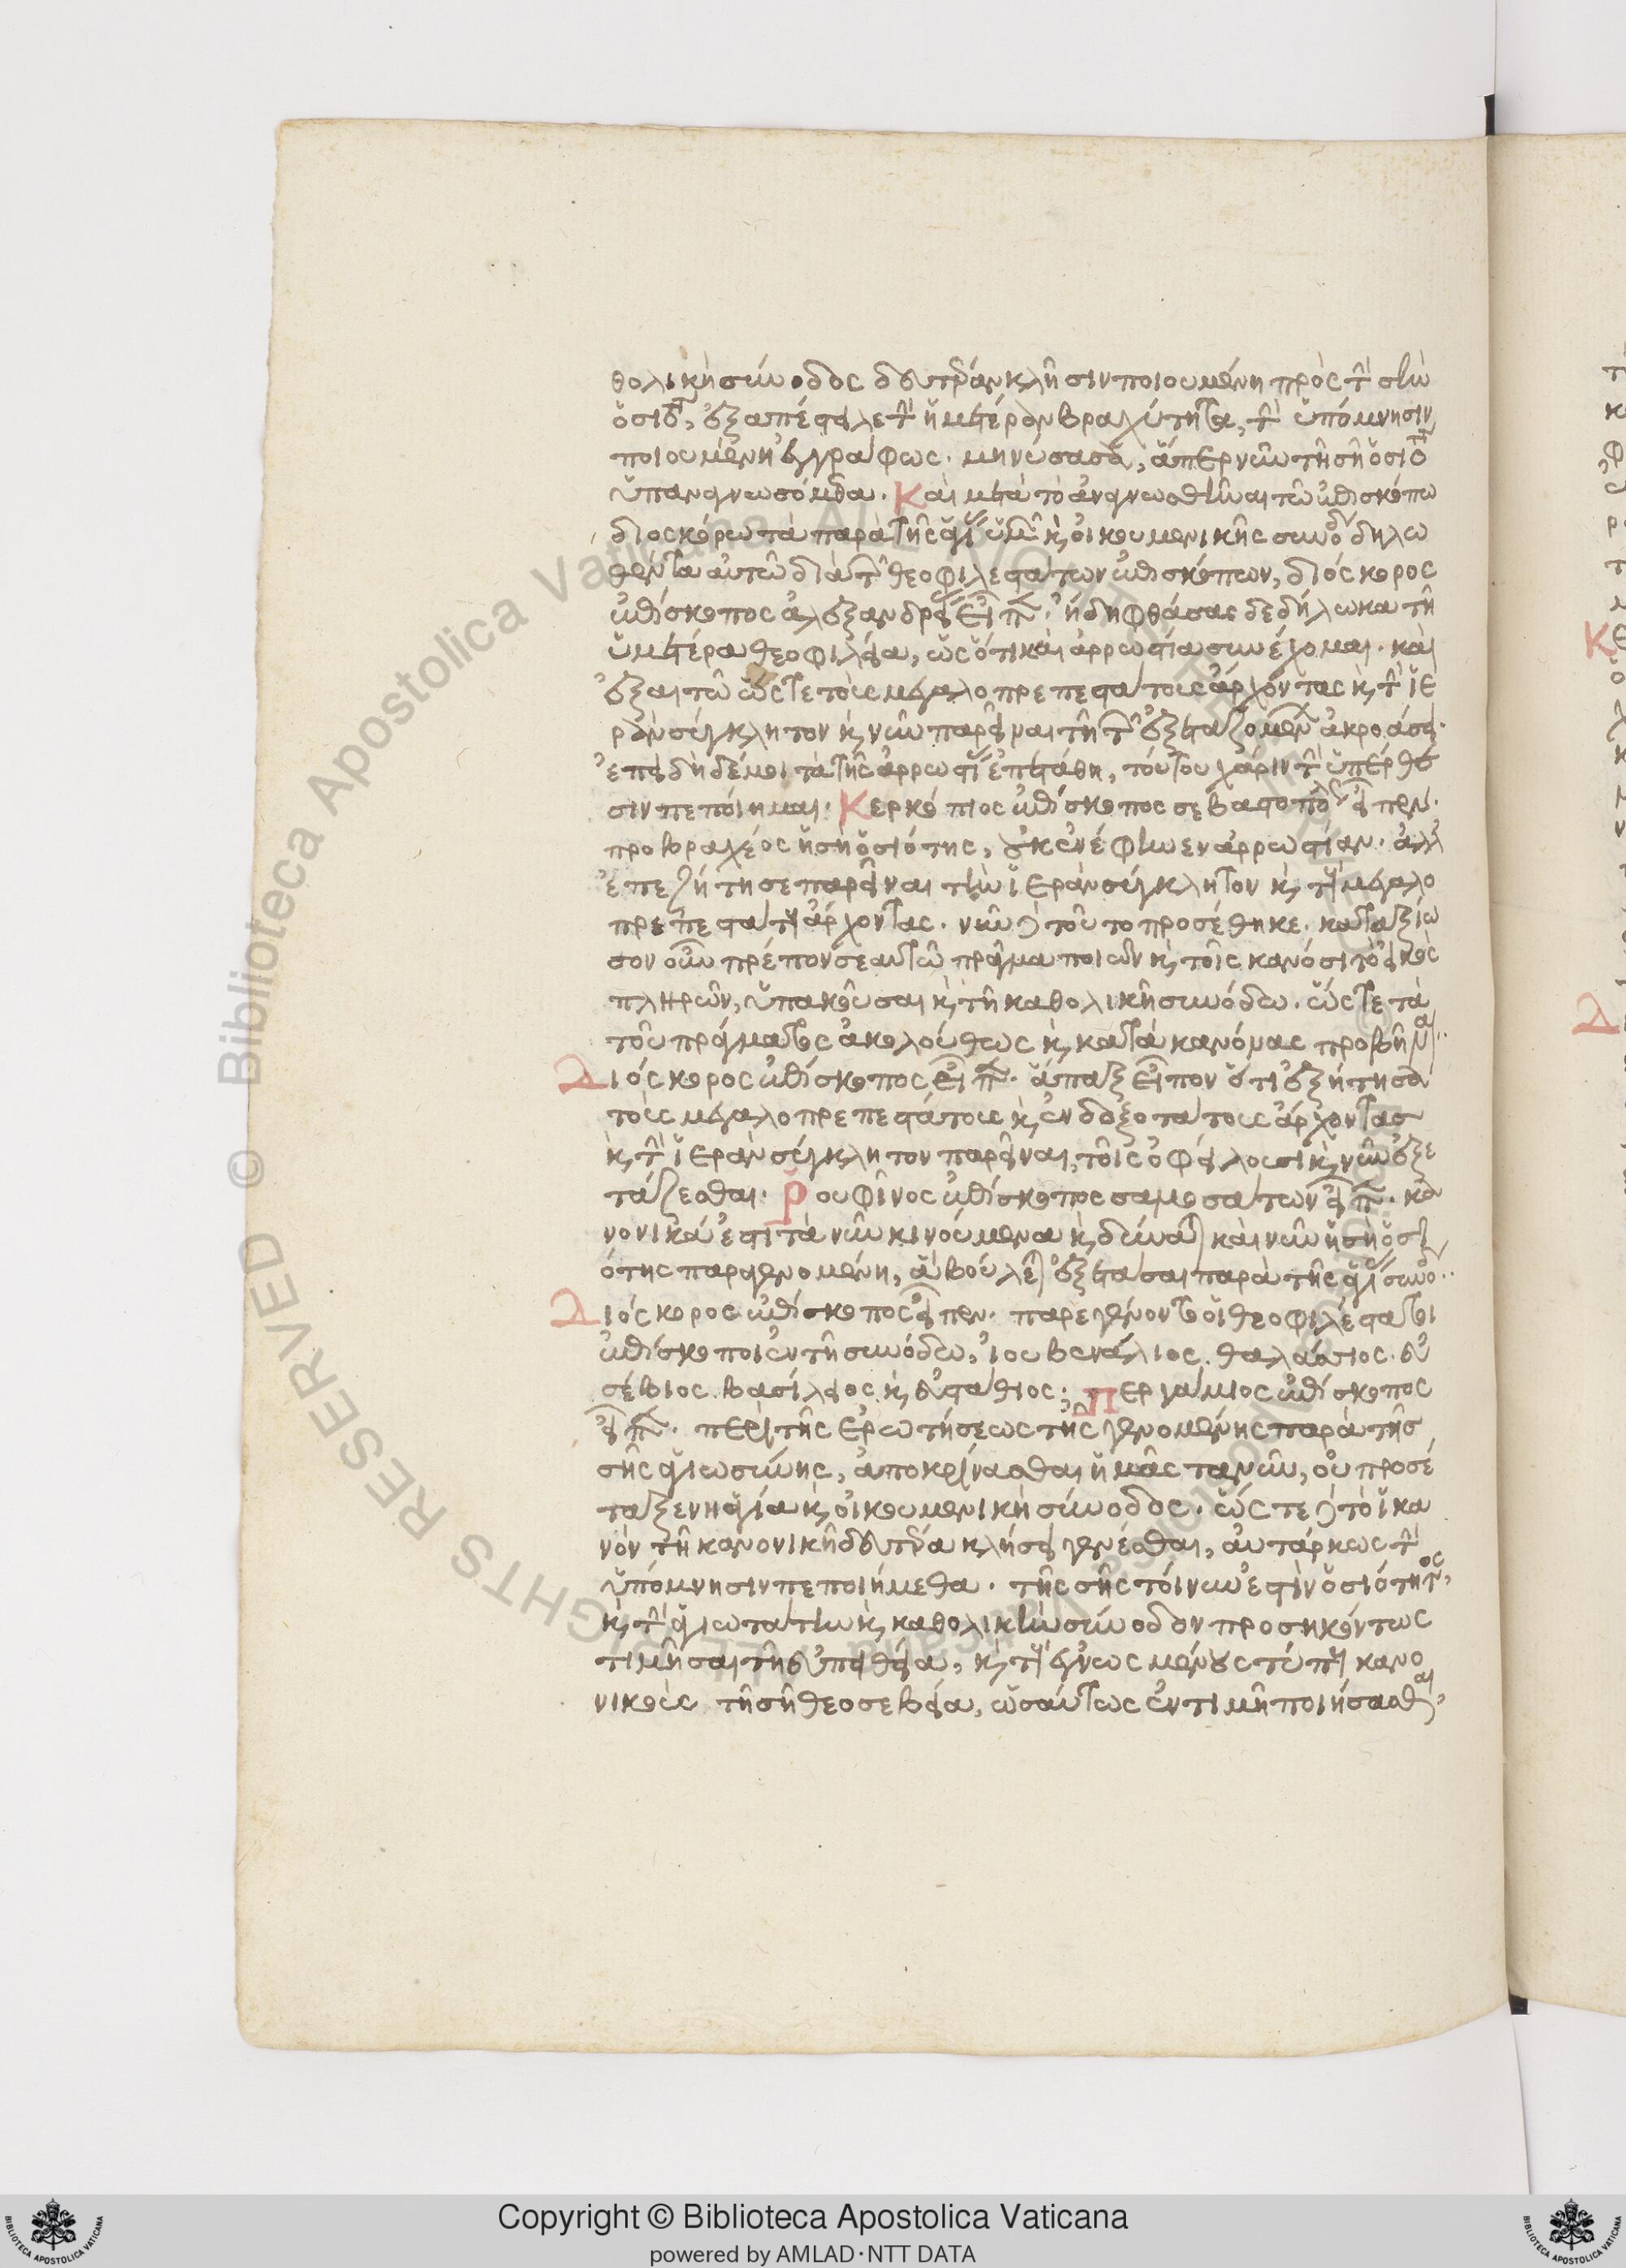 θολικὴ σύνοδος δευτέραν κλῆσιν ποιουμένη πρὸς τὴν σὴν
ὁσιότητα, ἐξαπέστειλε τὴν ἡμετέραν βραχύτητα, τὴν ὑπόμνησιν
ποιουμένη ἐγγράφως. μηνύσασα, ἅπερ νῦν τῆ σῆ ὁσιότητι
ὑπαναγνωσόμεθα. Καὶ μετὰ τὸ ἀναγνωσθῆναι τῶ ἐπισκόπω
διοσκόρω τὰ παρὰ τῆς ἁγίας ὑμῶν κ οἰκουμενικῆς συνόδου δηλω
θέντα αὐτῶ διὰ τῶν θεοφιλεστάτων ἐπισκόπων, διόσκορος
ἐπίσκοπος ἀλεξανδρείας εἶπεν. ἤδη φθάσας δεδήλωκα τῆ
ὑμετέρα θεοφιλεία, ὡς ὅτι καὶ ἀρρωστία συνέχομαι. καὶ
ἐξαιτῶ ὥστε τοὺς μεγαλοπρεπεστάτους ἄρχοντας κ τὴν ἱε
ρὰν σύγκλητον κ νῦν παρεῖναι τῆ τῶν ἐξεταζομένων ἀκροάσει.
ἐπειδὴ δέ μοι τὰ τῆς ἀρρωστίας ἐπετάθη, τούτου χάριν τὴν ὑπέρθε
σιν πεποίημαι. Κεκρόπιος ἐπίσκοπος σεβαστοπόλεως εἶπεν.
πρὸ βραχέος ἡ σὴ ὁσιότης, οὐκ ἐνέφηνεν ἀρρωστίαν. ἀλλ
ἐπεζήτησε παρεῖναι τὴν ἱερὰν σύγκλητον κ τοὺς μεγαλο
πρεπεστάτους ἄρχοντας. νῦν δὲ τοῦτο προσέθηκε. καταξίω
σον οὖν πρέπον σεαυτῶ πρᾶγμα ποιῶν κ τοῖς κανόσι τὸ εἰκὸς
πληρῶν, ὑπακοῦσαι κ τῆ καθολικῆ συνόδω. ὥστε τὰ
τοῦ πράγματος ἀκολούθως κ κατὰ κανόνας προβῆναι..
Διόσκορος ἐπίσκοπος εἶπεν. ἅπαξ εἶπον ὅτι ἐζήτησα
τοὺς μεγαλοπρεπεστάτους κ ἐνδοξοτάτους ἄρχοντας
κ τὴν ἱερὰν σύγκλητον παρεῖναι, τοῖς ὀφείλουσι κ νῦν ἐξε
τάζεσθαι. Ῥουφῖνος ἐπίσκοπος σαμοσάτων εἶπεν. κα
νονικά ἐστι τὰ νῦν κινούμενα κ δύναται καὶ νῦν ἡ σὴ ὁσι
ότης παραγενομένη, ἃ βούλεται ἐξετάσαι παρὰ τῆς ἁγίας συνόδου..
Διόσκορος ἐπίσκοπος εἶπεν. παρεγένοντο οἱ θεοφιλέστατοι
ἐπίσκοποι ἐν τῆ συνόδω, ἰουβενάλιος. θαλάσσιος. εὐ
σέβιος. βασίλειος κ εὐστάθιος; Περγάμιος ἐπίσκοπος
εἶπεν. περὶ τῆς ἐρωτήσεως τῆς γενομένης παρὰ τῆς
σῆς ἁγιωσύνης, ἀποκρίνασθαι ἡμᾶς τανῦν, οὐ προσέ
ταξεν ἡ ἁγία κ οἰκουμενικὴ σύνοδος. ὥστε δὲ τὸ ἱκα
νὸν τῆ κανονικῆ δευτέρα κλήσει γενέσθαι, αὐτάρκως τὴν
ὑπόμνησιν πεποιήμεθα. τῆς σῆς τοίνυν ἐστὶν ὁσιότητος,
κ τὴν ἁγιωτάτην κ καθολικὴν σύνοδον προσηκόντως
τιμῆσαι τῆ εὐπειθεία, κ τοὺς ἐγνωσμένους τύπους κανο
νικοὺς τῆ σῆ θεοσεβεία, ὡσαύτως ἐν τιμῆ ποιήσασθαι,